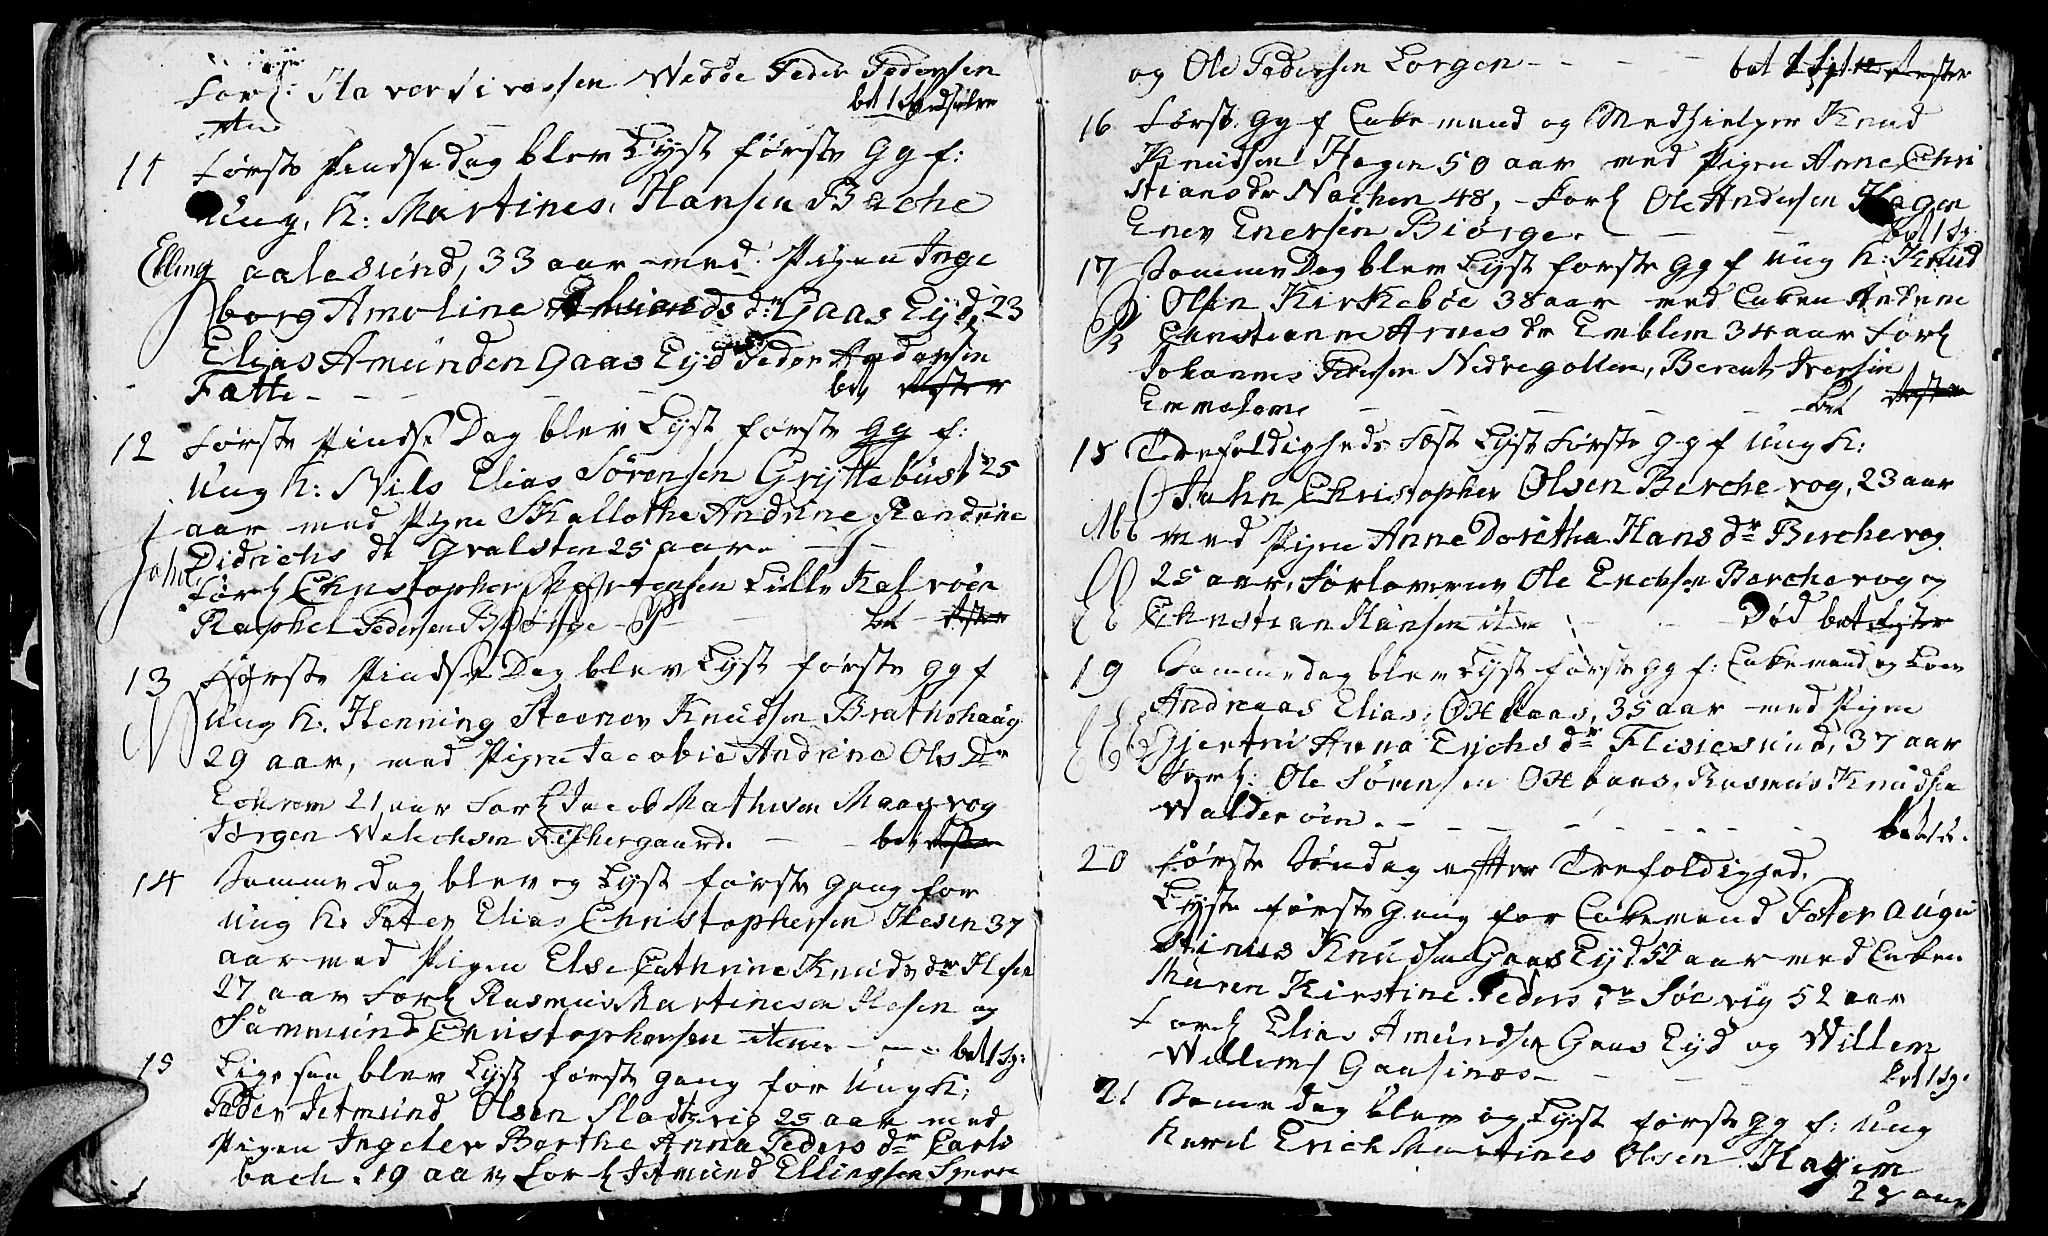 Forl: Staver Siversen Wedøe Peder Pedersen
bet 1
11 Første Pindsedag blev Lyst første Gg f:
Ung. K: Martines Hansen Berche
Elling aalesund, 33 aar med Pigen Inge
borg Amoline ds dr Gaas Eyd, 23
Elias Amunden Gaas Eyd Peder Andersen
Fatte - - - bet
12 Første Pindse Dag blev Lyst første gg f:
Ung K: Nils Elias Sørensen Gryttebust 25
aar med Pigen Skallothe Andrine Randrine
Didrichs dr Gralsten 25 aar.
Forl Christopher Mortensen Lille Kalvøen
Raphel Pedersen Biørge bet
13 Første Pindse Dag blev Lyst første gg f
Ung K. Henning Steener Knudsen Brathshaug
29 aar, med Pigen Jacobie Andrine Ols Dr
Echrem 21 aar Forl Jacob Mathisen Maagerog
Jørgen Welechsen Fiskergaard. - - bet
14 Samme Dag blev og Lyst første Gang for
Ung K. Peter Elias Christophersen Hesen 37
aar med Pigen Else Cathrine Knuds dr Hesen
27 aar Forl Rasmus Martinesen Hesen og
Sammund Christophersen item - - - bet 1 Sp:
15 Ligesaa blev Lyst første Gang for Ung K:
Peder Jetmund Olsen Sladtzvig 25 aar med
Pigen Ingeler Berthe Anna Peders dr Carls
bach. 19 aar, Forl Jetmund Ellingsen Sperre
og Ole Pedersen Lorgen - - - bet
16 Første gg f Enkemand og Medhielper Knud
Knudsen Hagen 50 aar med Pigen Anne Chri
stians dr Nachen 48, - Forl Ole Andersen Hagen
Ener Enersen Biørge. - - bet 1 Sp.
17 Samme Dag blev Lyst første gg f ung K: Knud
Olsen Kirkebøe 38 aar med Enken Andene
Christianne Arnes dr Emblem 34 aar Forl
Johannes Pedersen Nedregotten, Berent Iversen
Emmelem - - - bet
18 Trefoldigheds Fest Lyst Første gg f Ung K:
Jahn Christopher Olsen Bercherog, 23 aar
med Pigen Anne Dorethea Hans dr Bercherog
25 aar. Forloverne Ole Erichsen Bercherog og
Christian Hansen item - - Død bet
19 Samme dag blev Lyst første gg f: Enkemand og
Andreaas Elias: Oxbaas, 35 aar med Pigen
Gjertru Anna Erichs dr Flisiesund, 37 aar
Forl: Ole Sørensen Oxbaas, Rasmus Knudsen
Walderøen. - - - bet 1 S.
20 Første Søndag efter Trefoldighed.
Lyste første Gang for Enkemand Peter Augu
stinus Knudsen Gaas Eyd 52 aar med Enken
Maren Kirstine Peders dr Søevig 52 aar
Forl Elias Amundsen Gaas Eyd og Willem
Willems Gaasines - - - bet 1 Sp.
21 Samme dag blev og Lyst første gg f: Ung
Karl Erich Martines Olsen Hagen
28 aar